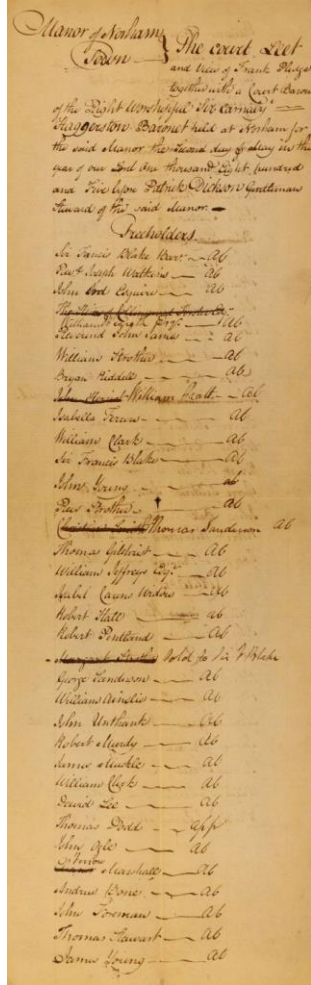 Manor of Norham
Town
The Court Leet
and View of Frank Pledge
together with a Court Baron
of the Right Worshipful Sir Carnaby
Haggerston Baronet held at Norham for
the said Manor the Second day of May in the
year of our Lord One thousand Eight hundred
and Five before Patrick Dickson Gentleman
Steward of the said Manor.
Freeholders
Sir Francis Blake Barᵗ ab
Revᵈ Joseph Watkins ab
John Ord Esquire ab
William Esqʳ ab
Reverend John James ab
William Strother ab
Bryan Riddell ab
John William Heatt ab
Isabella ab
William Clark ab
Sir Francis Blake ab
John Young ab
Peter Strother ab
Christian Smith Thomas Sanderson ab
Thomas Gilchrist ab
William Jeffreys Esqʳ ab
Isabel Cairns Widow ab
Robert Flatt ab
Robert Pentland ab
Margaret Strother Sold to Sir F Blake
George Sanderson ab
William Ainslie ab
John Unthank ab
Robert Mundy ab
James Muckle ab
William Clerk ab
David Lee ab
Thomas Dodd app
John Ogle ab
Marshall ab
Andrew Bone ab
John Foreman ab
Thomas Stewart ab
James Young ab